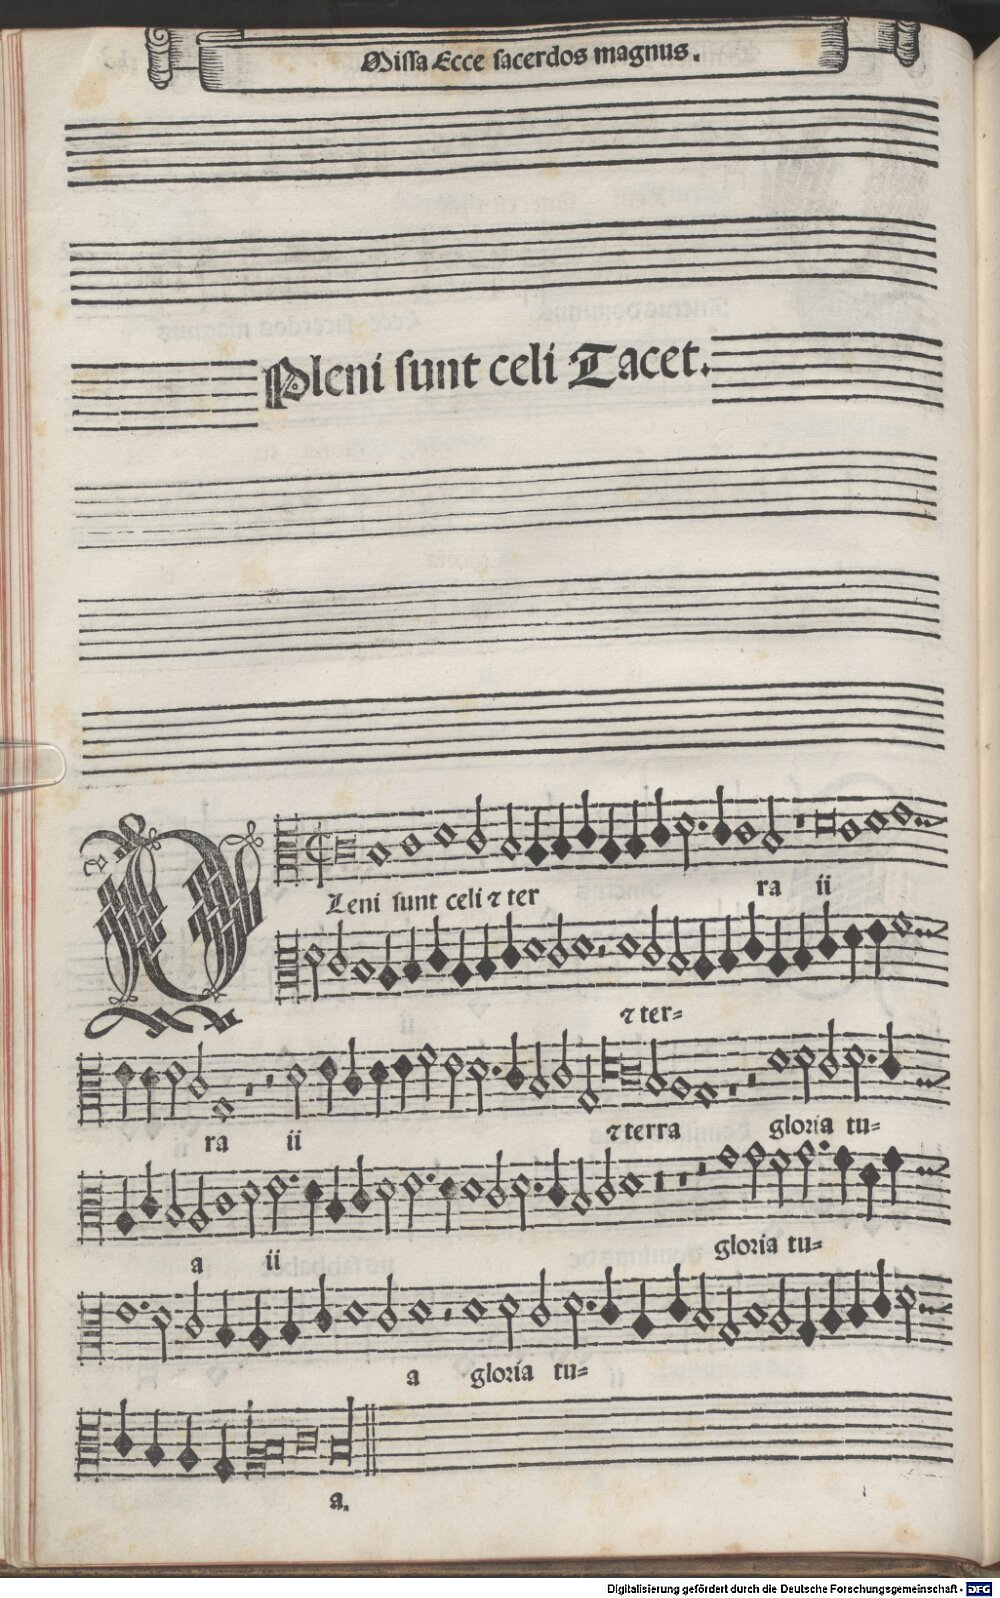 Missa Ecce sacerdos magnus.
Pleni sunt celi Tacet.
PLeni sunt celi ⁊ ter ra ii
⁊ ter=
ra ii ⁊ terra gloria tu=
a ii gloria tu=
a gloria tu=
a.
Digitalisierung gefördert durch die Deutsche Forschungsgemeinschaft - DFG